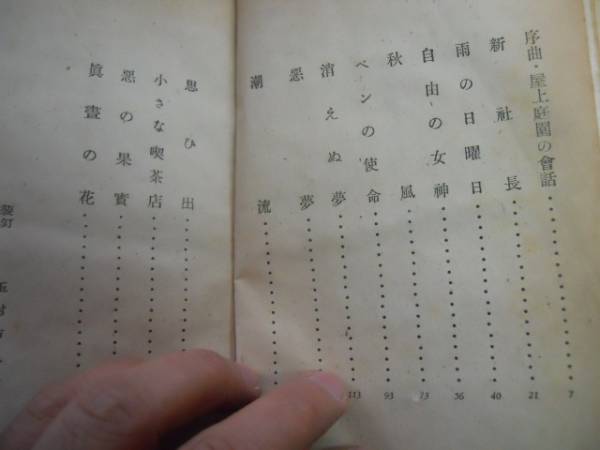 序曲・屋上庭園の會話 7
新社長 21
雨の日曜日 40
自由の女神 56
秋風 73
ペンの使命 93
消えぬ夢 113
惡夢
潮流
思ひ出
小さな喫茶店
惡の果實
眞晝の花
裝釘